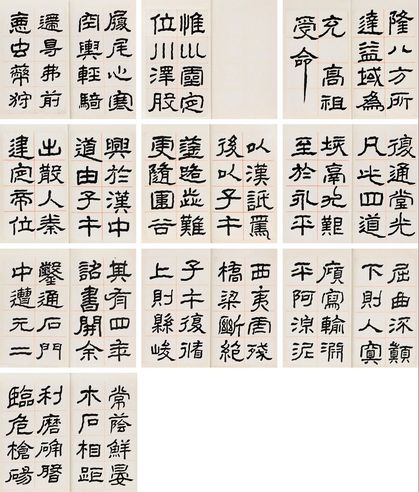 履尾心寒
空輿輕騎
遰㝵弗前
惡虫蔽狩
惟巛靈定
位川澤股
隆八方所
達益域為
充 高祖
受命
興於漢中
道由子午
出散入秦
建定帝位
以漢詆焉
後以子午
塗路歰難
更隨圍谷
復通堂光
凡此四道
垓鬲尤艱
至於永平
其有四年
詔書開余
鑿通石門
中遭元二
西夷虐殘
橋梁斷絕
子午復循
上則縣峻
屈曲流顛
下則入冥
傾寫輸淵
平阿淖泥
常蔭鮮晏
木石相距
利磨确磐
臨危槍碭